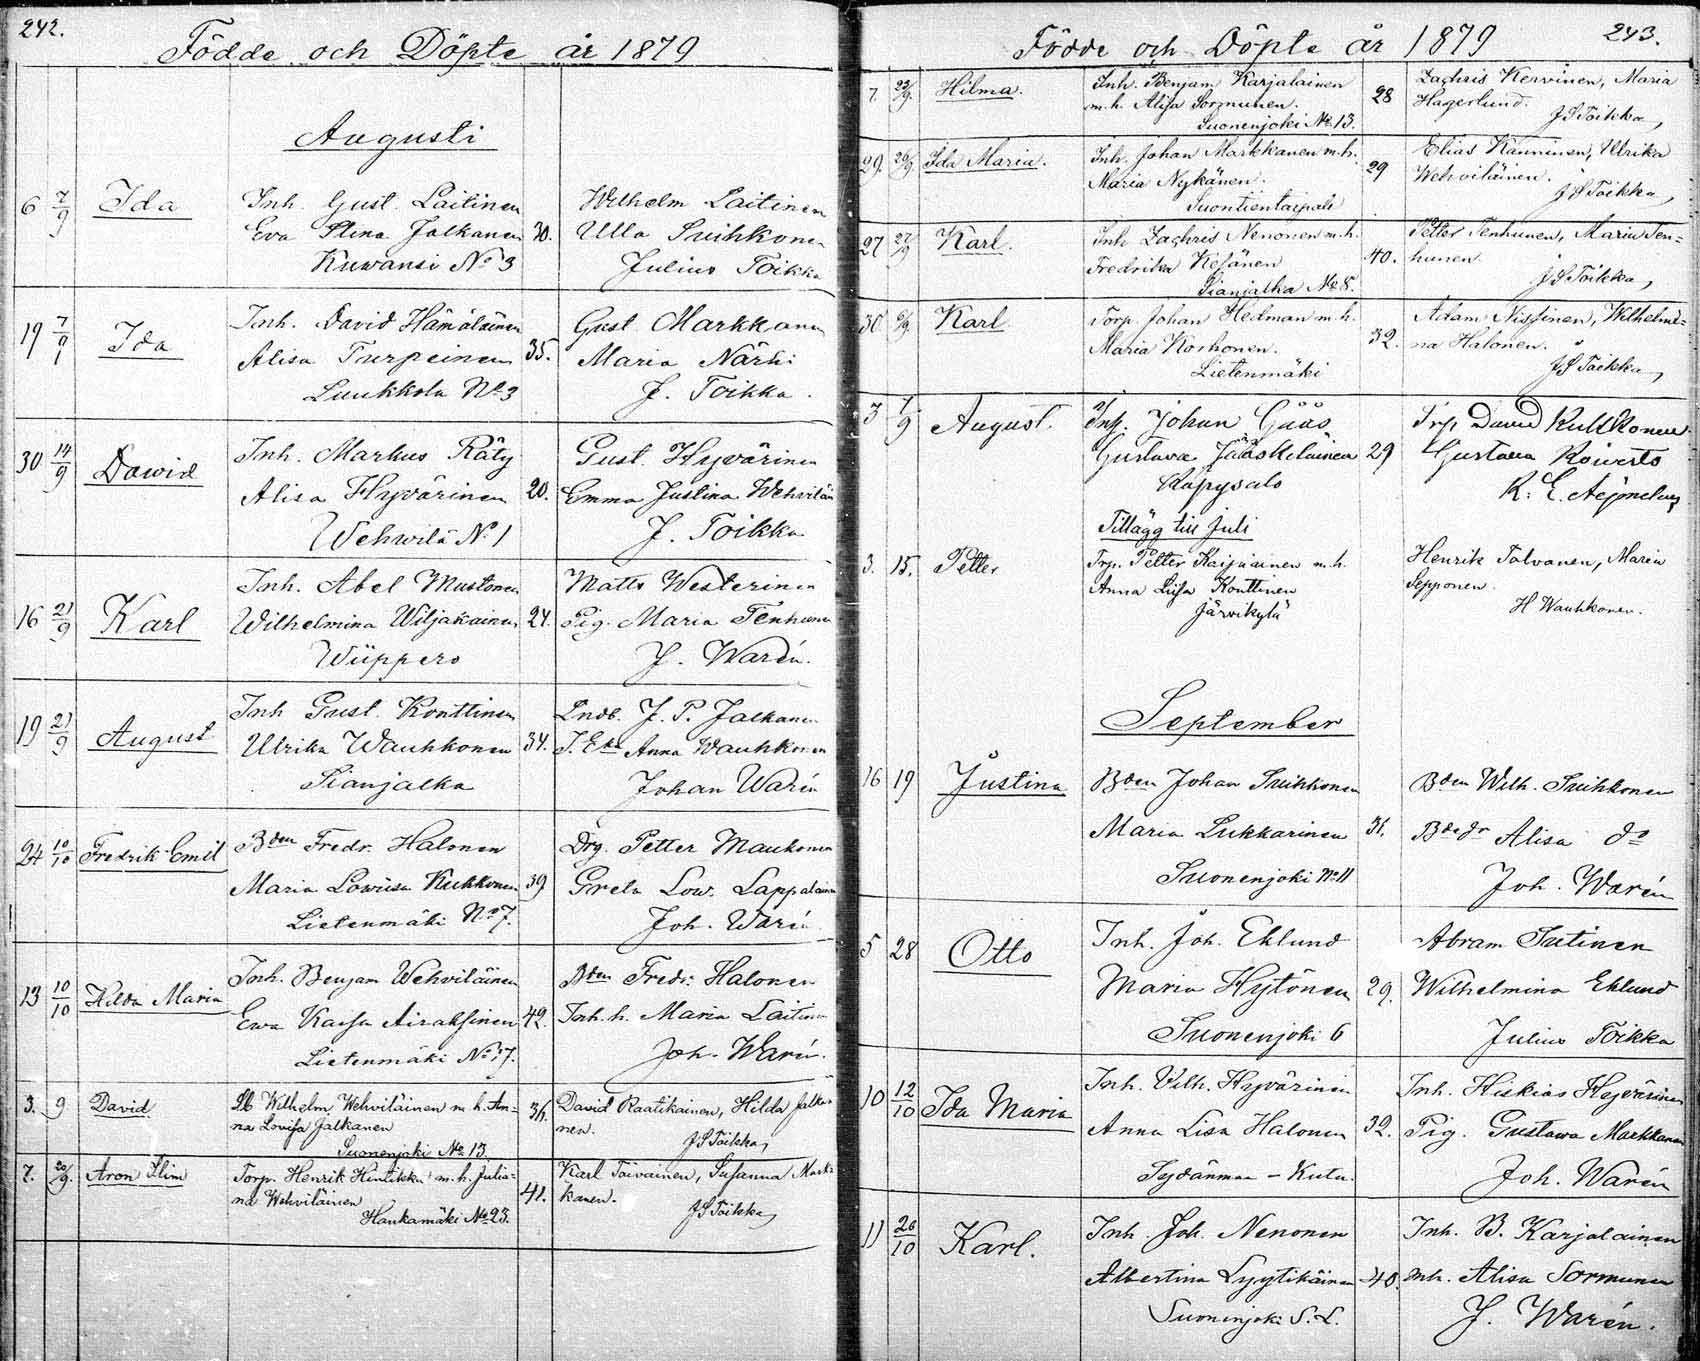 242.
Födde och Döpte år 1879
Augusti
6 7/9 Ida Inh. Gust. Laitinen Wilhelm Laitinen
Eva Stina Jalkanen 30. Ulla Suihkonen
Kuwansi No 3 Julius Toikka
19 7/9 Ida Inh. David Hämäläinen Gust Markkanen
Alisa Turpeinen 35. Maria Närhi
Luukkola No 3 J. Toikka.
30 14/9 Dawid Inh. Markus Räty Gust. Hyvärinen
Alisa Hyvärinen 20. Emma Justina Wehvilän
Wehwilä No 1 J. Toikka
16 21/9 Karl Inh. Abel Mustonen Matts Westerinen
Wilhelmina Wiljakainen 24. Pig. Maria Tenhunen
Wiippero J. Warén.
19 21/9 August Inh Gust. Konttinen Lndb. J. P. Jalkanen
Ulrika Wauhkonen 34. Anna Wauhkonen
Sianjalka Johan Warén
24 10/10 Fredrik Emil Bden Fredr. Halonen Drg. Petter Maukonen
Maria Lowisa Kukkonen 39 Greta Low. Lappalainen
Lietenmäki No 7. Joh. Warén
13 10/10 Hilda Maria Inh. Benjam Wehviläinen Bden Fredr. Halonen
Ewa Kaisa Airaksinen 42. Inh. h. Maria Laitinen
Lietenmäki No 17. Joh. Warén.
3. 9 David Wilhelm Wehviläinen m. h. An= 36. David Raatikainen, Hilda Jalka=
na Lovisa Jalkanen nen.
Suonenjoki No 13. J S Toikka,
7. 20/9. Aron Torp. Henrik Hintikka m. h. Julia= 41. Karl Toivainen, Susanna Mark=
na Wehviläinen kanen.
Hankamäki No 23. J S Toikka,
Födde och Döpte år 1879 243.
7. 23/9. Hilma. Inh. Benjam. Karjalainen 28 Zachris Kervinen, Maria
m. h. Alisa Sormunen. Hagerlund.
Suonenjoki No 13. J S Toikka,
29. 26/9 Ida Maria. Inh. Johan Markkanen m. h. 29 Elias Känninen, Ulrika
Maria Nykänen. Wehviläinen.
Suontientaipale J S Toikka,
27 27/9 Karl. Inh Zachris Nenonen m. h. Petter Tenhunen, Maria Ten=
Fredrika Kesänen 40. hunen.
Sianjalka No 8. J S Toikka,
30. Karl Torp. Johan Hedman m. h. Adam Nissinen, Wilhelmi=
Maria Korhonen. 32. na Halonen.
Lietenmäki J S Toikka,
3 7/9 August. Inh. Johan Gåås Trp David Kukkonen
Gustava Jääskeläinen 29 Gustava Koivisto
Käpysalo K. E. Aejmelaeus
Tillägg till Juli
3. 15. Petter Trp. Petter Kaipiainen m. h. Henrik Tolvanen, Maria
Anna Liisa Konttinen Sepponen.
Järvikylä H Wauhkonen.
September
16 19 Justina Bden Johan Suihkonen Bden Wilh. Suihkonen
Maria Lukkarinen 31. Alisa do
Suonenjoki No 11 Joh. Warén
5 28 Otto Inh. Joh. Eklund Abram Sutinen
Maria Hytönen 29. Wilhelmina Eklund
Suonenjoki 6 Julius Toikka
10 12/10 Ida Maria Inh. Vilh. Hyvärinen Inh. Hiskias Hyvärinen
Anna Lisa Halonen 32. Pig. Gustava Markkanen
Sydänmaa - Kutu. Joh. Warén
11 26/10 Karl. Inh. Joh. Nenonen Inh. B. Karjalainen
Albertina Lyytikäinen 40. Inh. Alisa Sormunen
Suoninjoki S. L. J. Warén.